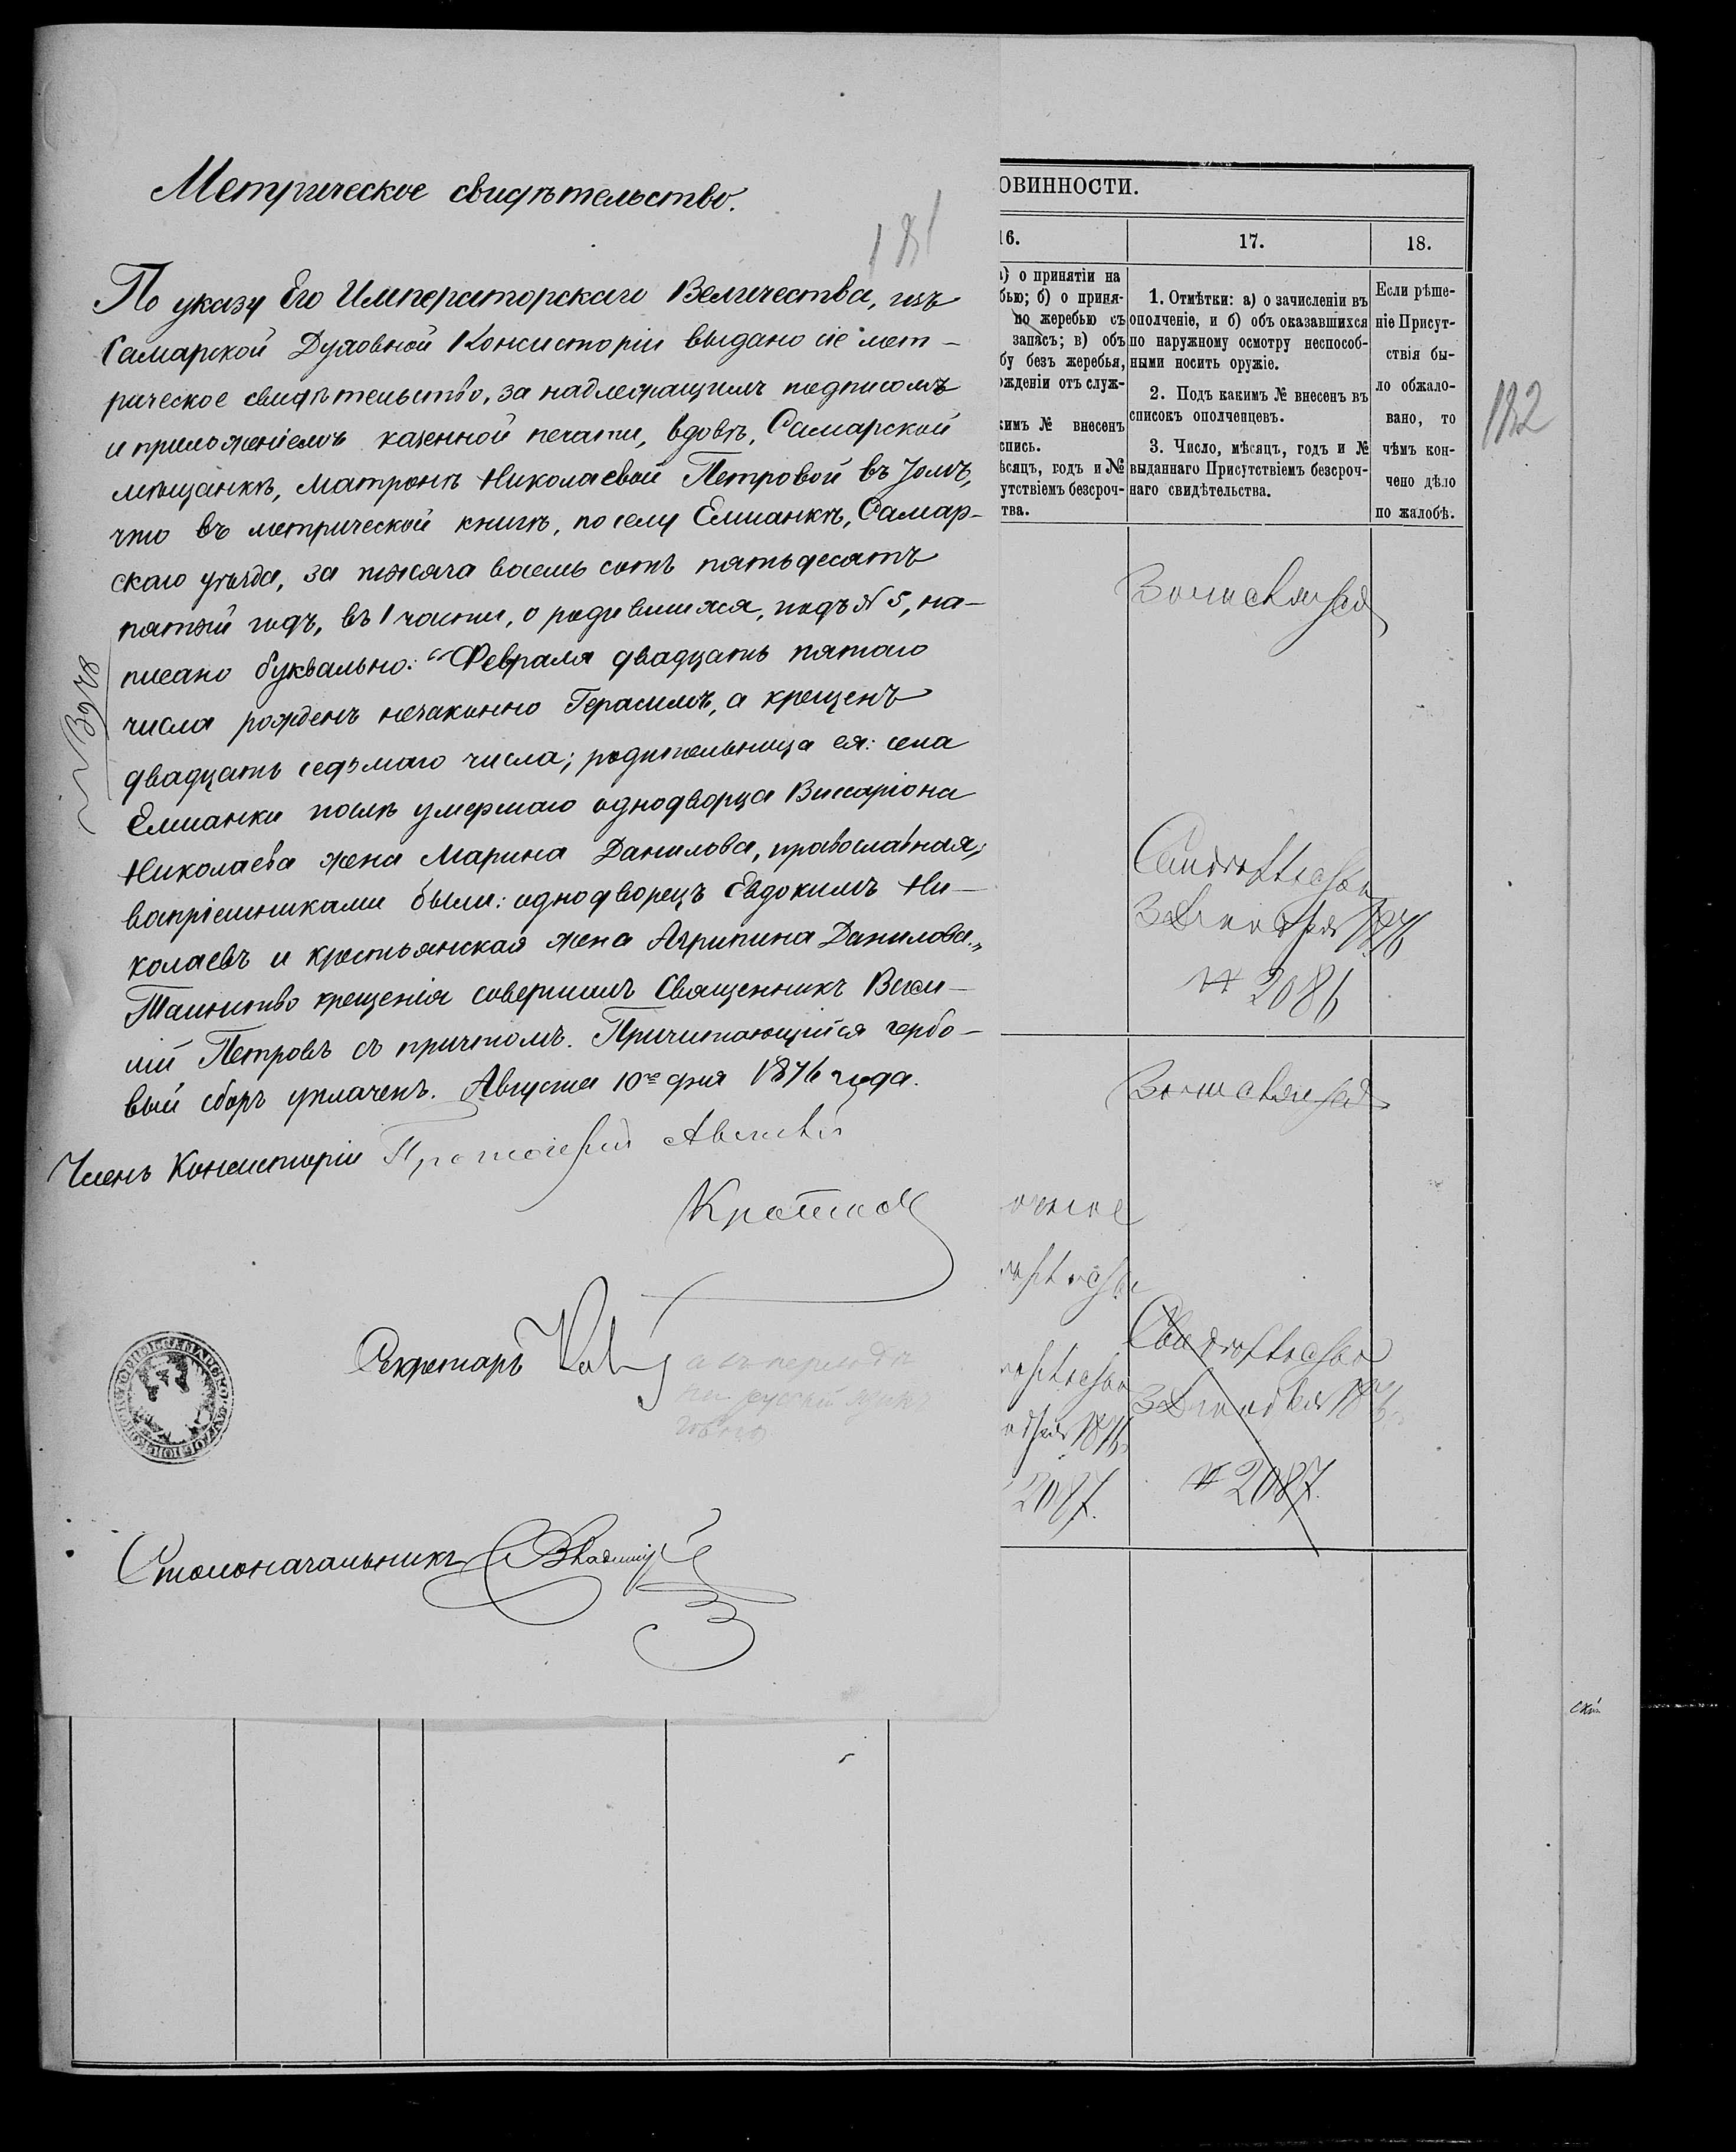 Метрическое свидѣтельство.
181
По указу Его Императорскаго Величества, изъ
Самарской Духовной Консисторіи выдано сіе мет-
рическое свидѣтельство, за надлежащимъ подписомъ
и приложеніемъ казенной печати, вдовѣ, Самарской
мѣщанкѣ, Матронѣ Николаевой Петровой въ томъ,
что въ метрической книгѣ, по селу Елшанкѣ, Самар-
скаго уѣзда, за тысяча восемь сотъ пятьдесятъ
пятый годъ, въ 1 части, о родившихся, подъ № 5, на-
писано буквально: "Февраля двадцать пятаго
числа рожденъ незаконно Герасимъ, а крещенъ
двадцать седьмаго числа; родительница ея: села
Елшанки послѣ умершаго однодворца Виссаріона
Николаева жена Марина Данилова, православная;
вопріемниками были: однодворецъ Евдокимъ Ни-
колаевъ и крестьянская жена Агрипина Данилова."
Таинство крещенія совершилъ Священникъ Васи-
лій Петровъ съ причтомъ. Причитающійся гербо-
вый сборъ уплаченъ. Августа 10го дня 1876 года.
Членъ Консисторіи Протоіерей
Секретарь
Столоначальникъ
ОВИННОСТИ.
16.
17.
18.
а) о принятіи на
бью; б) о приня-
по жеребью съ
запасъ; в) объ
бу безъ жеребья,
ожденіи отъ служ-
кимъ № внесенъ
спись.
ѣсяцъ, годъ и №
утствіемъ безсроч-
тва.
1. Отмѣтки: а) о зачисленіи въ
ополченіе, и б) объ оказавшихся
по наружному осмотру неспособ-
ными носить оружіе.
2. Подъ какимъ № внесенъ въ
списокъ ополченцевъ.
3. Число, мѣсяцъ, годъ и №
выданнаго Присутствіемъ безсроч-
наго свидѣтельства.
Если рѣше-
ніе Присут-
ствія бы-
ло обжало-
вано, то
чѣмъ кон-
чено дѣло
по жалобѣ.
182
№ 2086
2087.
№ 2087.